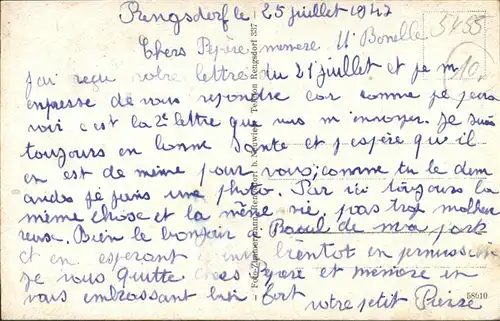 Rengsdorf le 25 juillet 1947
Chers Pépère mémère U Bonelle
J'ai reçu votre lettre du 21 juillet et je m
empresse de vous reponse car comme je peux
voir c'est la 2e lettre que vous m'envoyer. Je suis
toujours en bonne sante et j'espère qu'il
en est de même pour vous; comme tu le dem
andes je une photo. Par ici toujours la
même chose et la même vie, pas trop malheu
reuse. Bien le bonjour a Raoul de ma part
et en esperant bientot en permission
Je vous quitte chers pepere et mémère en
vous embrassant bien fort
votre petit Pierre
Foto-Zimmermann, Rengsdorf b. Neuwied, Telefon Rengsdorf 337
58610
5455
10